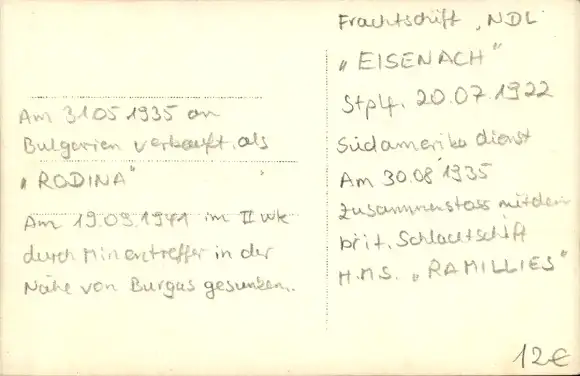 Frachtschiff „NDL
„EISENACH"
Stplf. 20.07.1922
Südamerika dienst
Am 30.08.1935
Zusammenstoss mit dem
brit. Schlachtschiff
H.M.S. „RAMILLIES"
Am 31.05.1935 an
Bulgarien verkauft. als
„RODINA"
Am 19.09.1941 im II Wk
durch Minentreffer in der
Nähe von Burgas gesunken.
12€